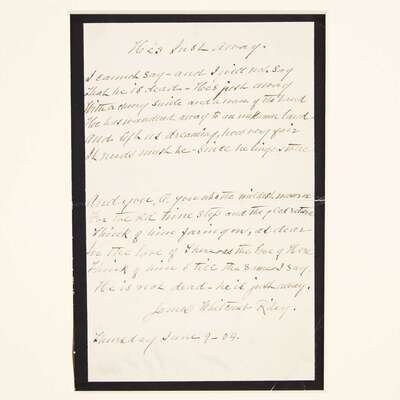 He's Just Away.
I cannot say - and I will not say
That he is dead - He's just away
With a cheery smile and a wave of the hand
He has wandered away to an unknown land
And left us dreaming, how very fair
It needs must be - since he lingers there
And you, O, you who the wildest yearn
For the old time step and the glad return
Think of him faring on, as dear
In the love of There as the love of Here
Think of him still the same I say
He is not dead - he is just away.
James Whitcomb Riley.
Thursday June 9 - 04.